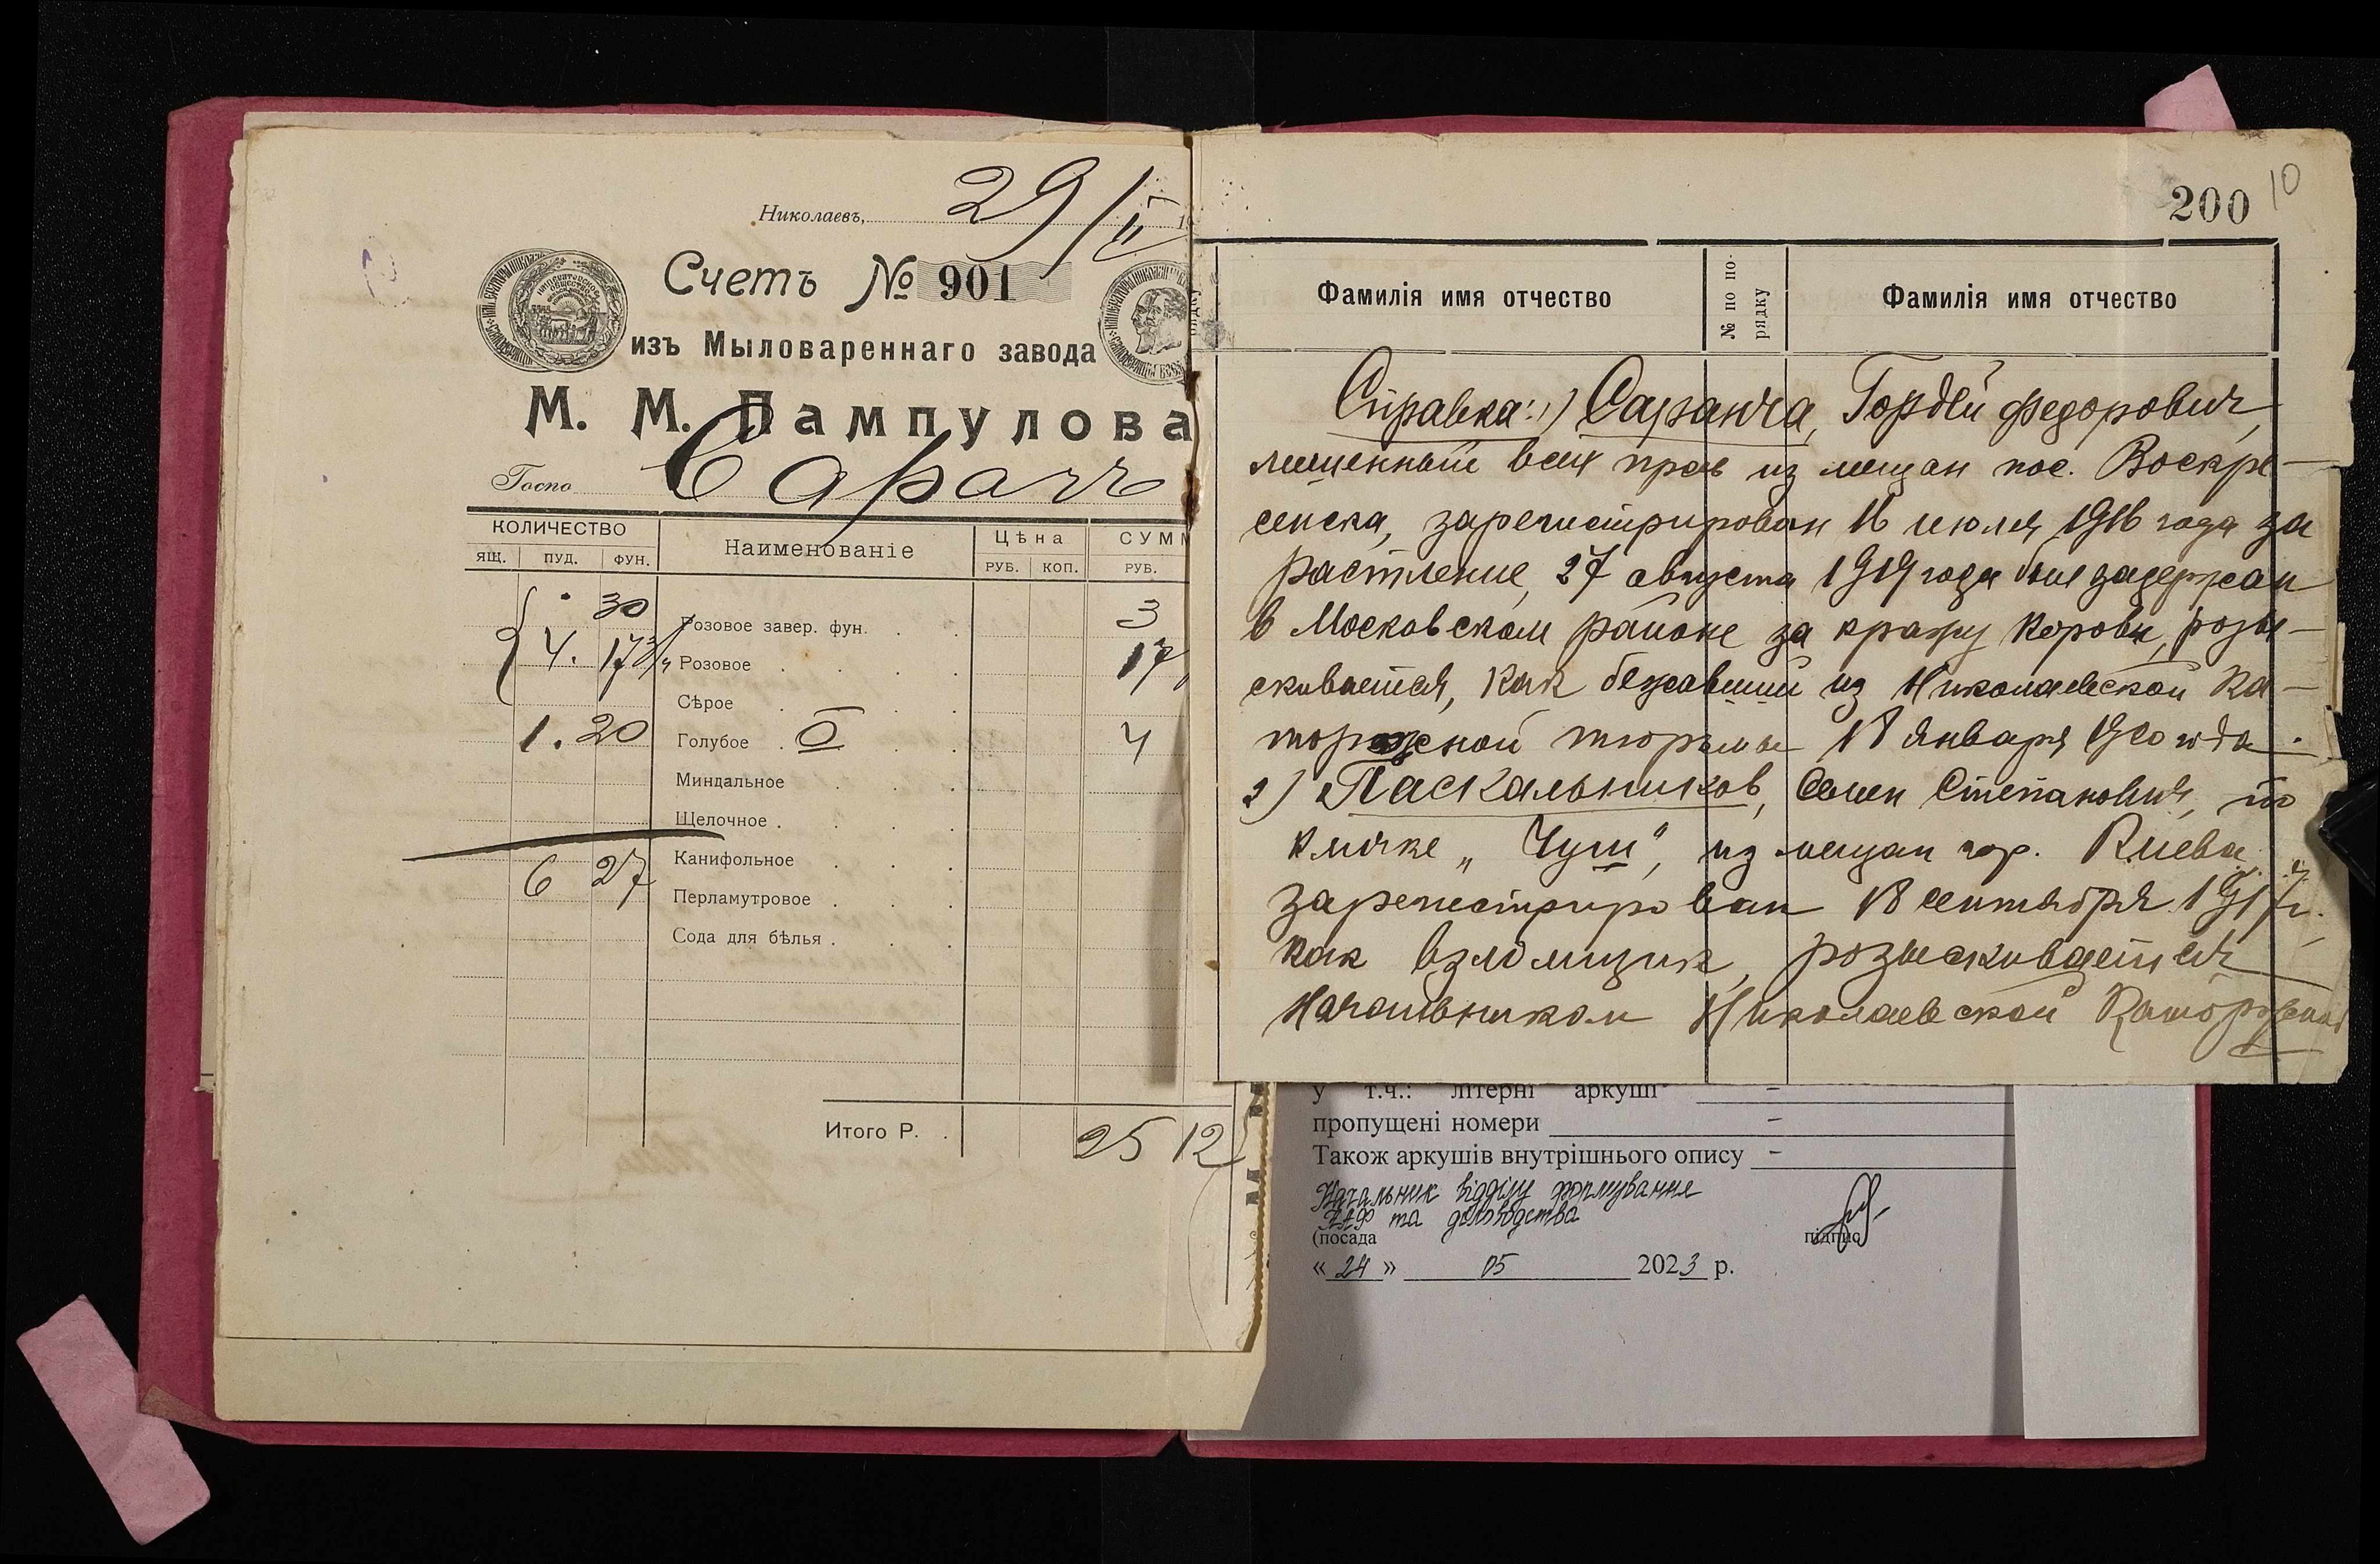 Николаевъ, 29/II 19
Счетъ № 901
изъ Мыловареннаго завода
М. М. Пампулова
Госпо Сарачъ
КОЛИЧЕСТВО Наименованіе Цѣна СУММ
ЯЩ. ПУД. ФУН. РУБ. КОП. РУБ.
30 Розовое завер. фун. 3
4. 17 3/4 Розовое 17
Сѣрое
1. 20 Голубое O 4
Миндальное
Щелочное
Канифольное
6 27
Перламутровое
Сода для бѣлья
Итого Р. 25 12
200 10
Фамилія имя отчество № по по-рядку Фамилія имя отчество
Справка: 1) Саранча, Гордей Федорович,
лишенный всех прав из мещан пос. Воскре-
сенска, зарегистрирован 16 июля 1916 года за
растление, 27 августа 1919 года был задержан
в Московском районе за кражу коровы, розы-
скивается, как бежавший из Николаевской ка-
торжной тюрьмы 18 января 1920 года.
2) Паскальников, Семен Степанович, по
кличке „Чуш“, из мещан гор. Киева,
зарегистрирован 18 сентября 1917 г.
как взломщик, розыскивается
Начальником Николаевской Каторжной
у т.ч.: літерні аркуші –
пропущені номери –
Також аркушів внутрішнього опису –
Начальник відділу формування
НАФ та діловодства
(посада підпис
« 24 » 05 2023 р.